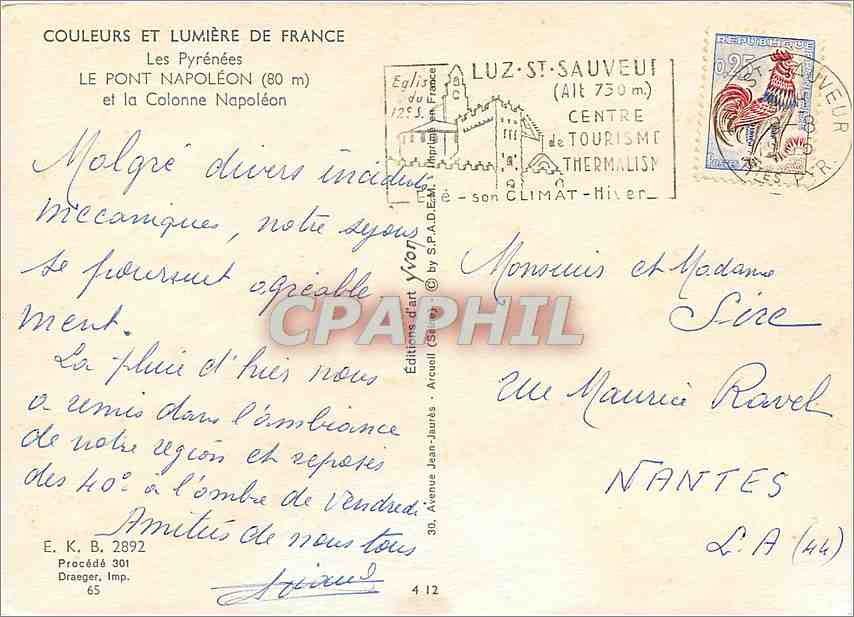 COULEURS ET LUMIÈRE DE FRANCE
Les Pyrénées
LE PONT NAPOLÉON (80 m)
et la Colonne Napoléon
Malgré divers incidents
mecaniques, notre sejour
se poursuit agréable
ment.
La pluie d'hier nous
a remis dans l'ambiance
de notre région et reposés
des 40° à l'ombre de Vendredi
Amitiés de nous tous
E. K. B. 2892
Procédé 301
Draeger, Imp.
65
Éditions d'art yvon
30, Avenue Jean-Jaurès - Arcueil (Seine) © by S.P.A.D.E.M. Imprimé en France
4 12
Eglise
du
12e S.
LUZ·ST·SAUVEUR
(Alt 730 m.)
CENTRE
de TOURISME
THERMALISM
Eté - son CLIMAT - Hiver
REPUBLIQUE
0,25
ST SAUVEUR
PYR.
Monsieur et Madame
Sire
rue Maurice Ravel
NANTES
L.A (44)
CPAPHIL